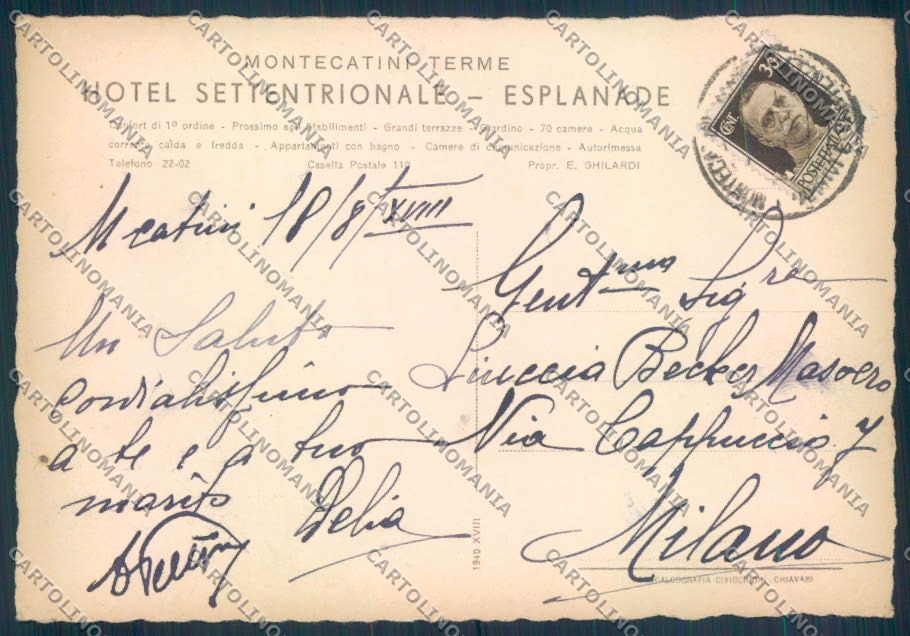 MONTECATINI TERME
HOTEL SETTENTRIONALE - ESPLANADE
Confort di 1º ordine - Prossimo agli Stabilimenti - Grandi terrazze - Giardino - 70 camere - Acqua
corrente calda e fredda - Appartamenti con bagno - Camere di comunicazione - Autorimessa
Telefono 22-02 Casella Postale 110 Propr. E. GHILARDI
CENT. 30
POSTE ITALIANE
M catini 18/8/XVIII
Un Saluto
cordialissimo
a te e a tuo
marito
Delia
Gent.ma Sig.re
Liuccia Becker Masoero
Via Cappuccio 7
Milano
1940 XVIII
CHIAVARI
CARTOLINOMANIA